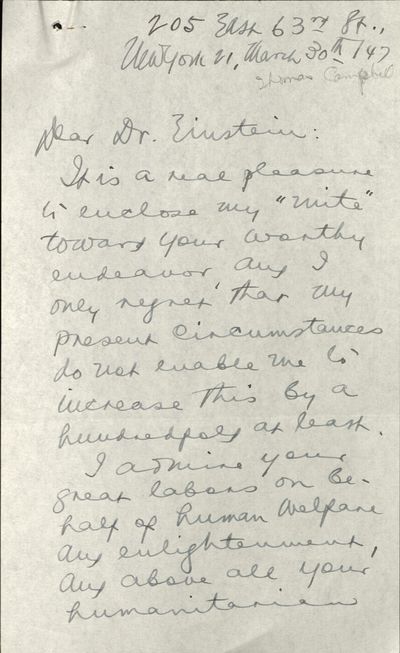 205 East 63rd St.,
New York 21, March 30th/47
Thomas Campbell
Dear Dr. Einstein:
It is a real pleasure
to enclose my "mite"
toward your worthy
endeavor, and I
only regret that my
present circumstances
do not enable me to
increase this by a
hundredfold at least.
I admire your
great labors on be-
half of human welfare
and enlightenment,
and above all your
humanitarian